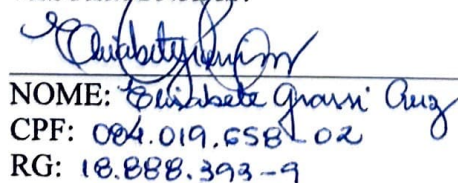 NOME: Elisabete Grassi Cruz
CPF: 084.019.658-02
RG: 18.888.393-9